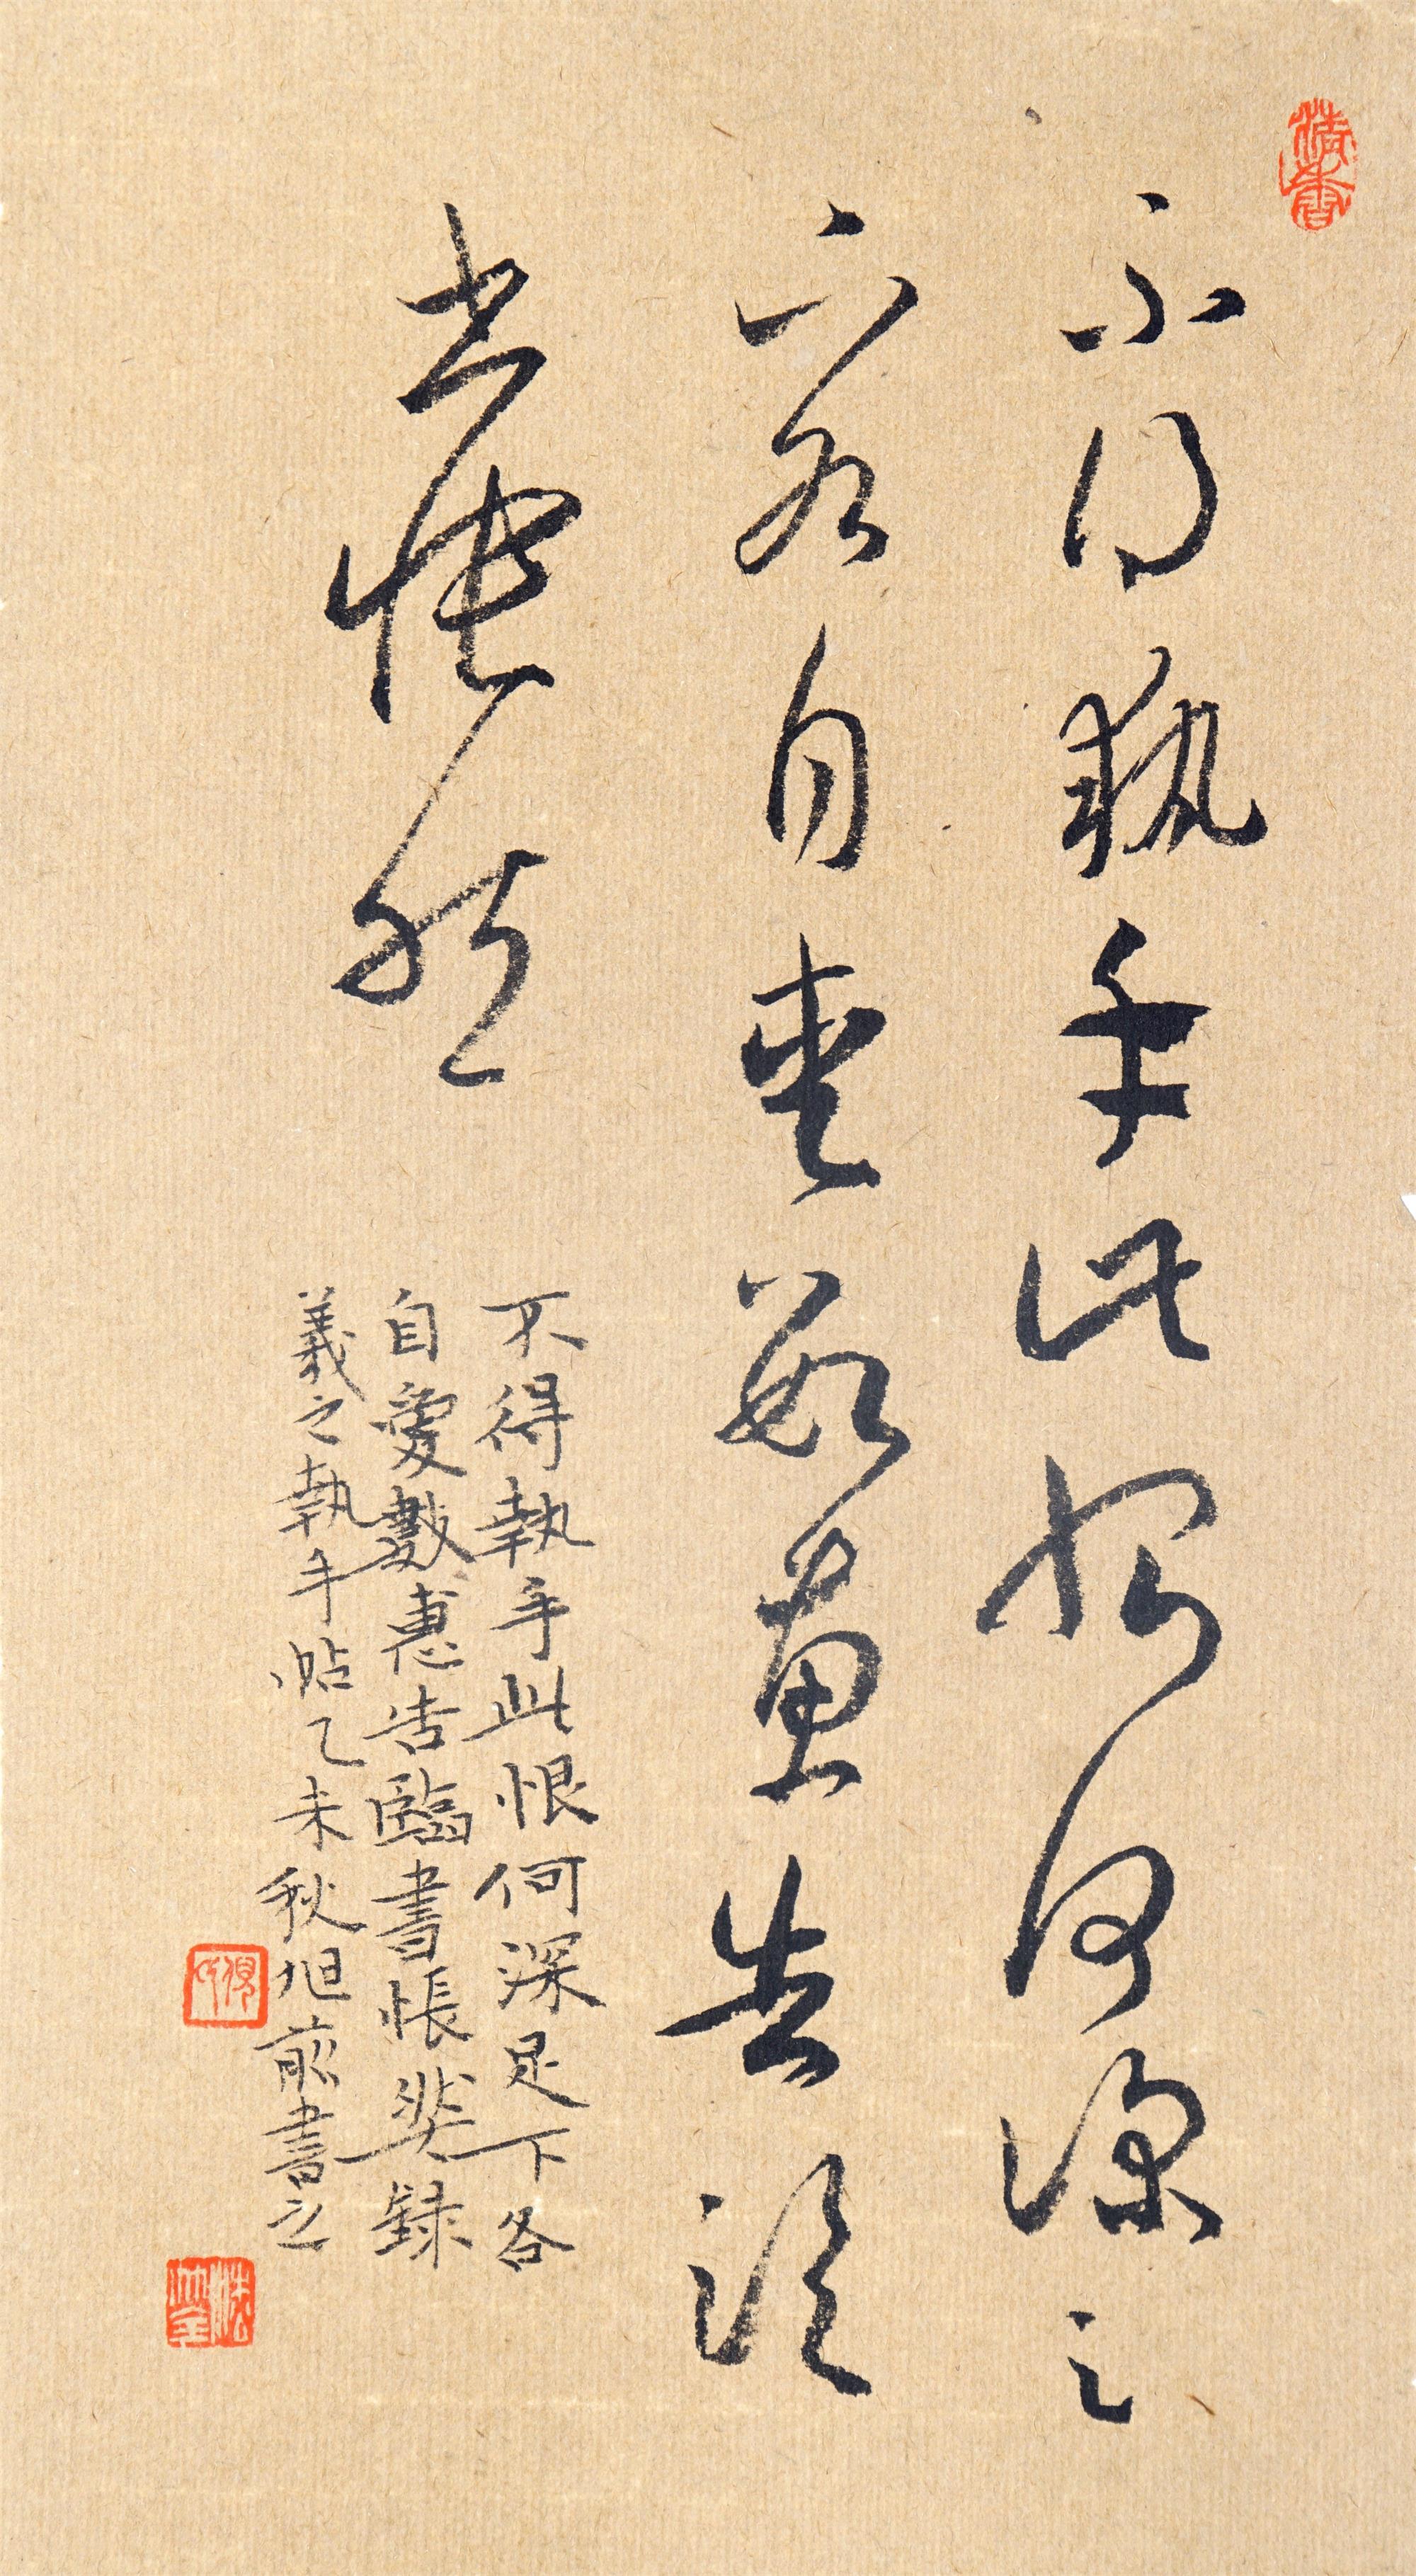 清香
不得執手此恨何深足
下各自愛數惠告臨
書悵然
不得執手此恨何深足下各
自愛數惠告臨書悵然錄
羲之執手帖乙未秋旭前書之